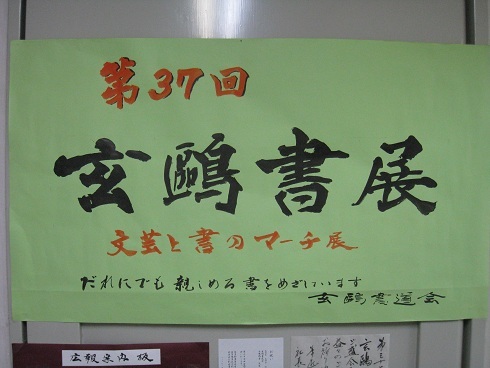 第37回
玄鷗書展
文芸と書のマーチ展
だれにでも親しめる書をめざしています
玄鷗書道会
広報案内板